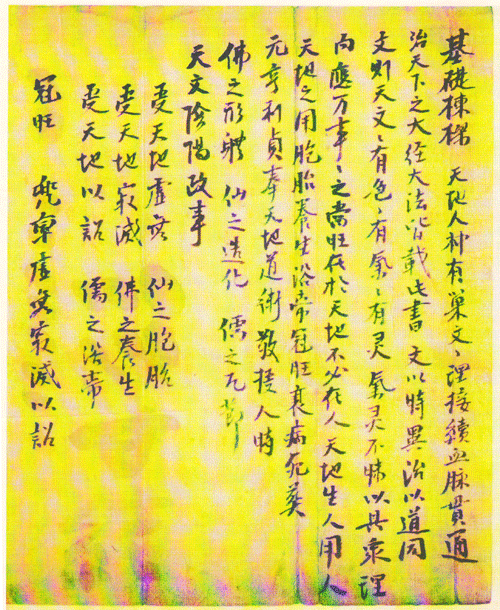 基礎棟樑 天地人神有巢文〻理接續血脉貫通
治天下之大経大法皆載此書 文以時異治以道同
文則天文〻有色〻有氣〻有灵 氣灵不昧以具衆理
而應万事〻之當旺在於天地不必在人 天地生人用人
天地之用胞胎養生浴帶冠旺衰病死葬
元亨利貞奉天地道術敬授人時
佛之形軆 仙之造化 儒之凡節
天文陰陽政事
受天地虛無 仙之胞胎
受天地寂滅 佛之養生
受天地以詔 儒之浴帶
冠旺 兜率虛無寂滅以詔